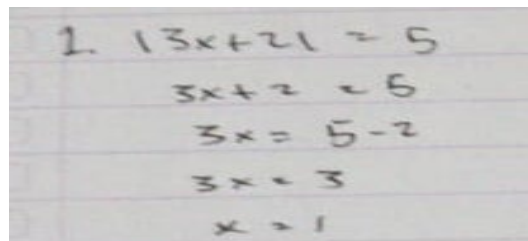 1. |3x+2| = 5
3x+2 = 5
3x = 5-2
3x = 3
x = 1